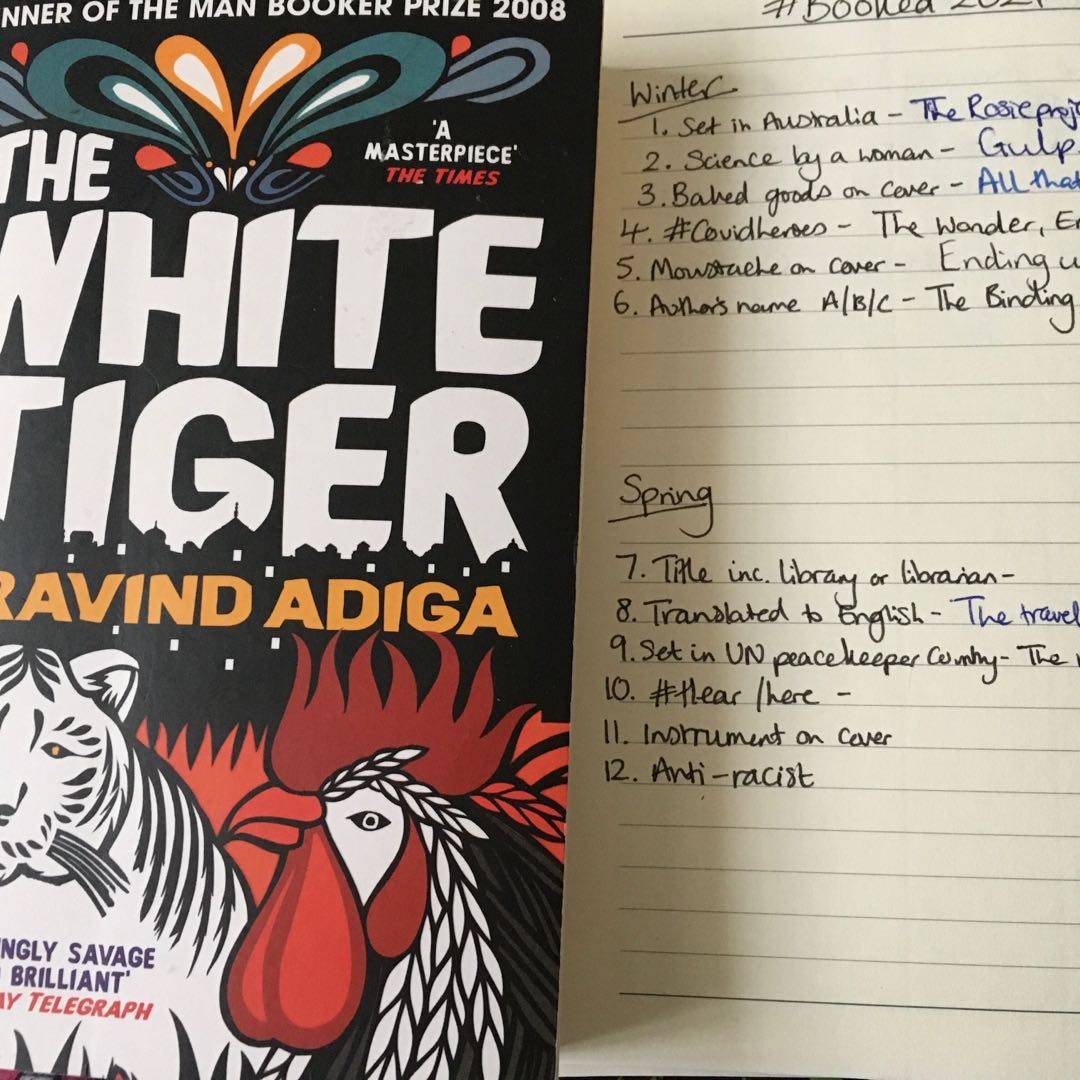 NNER OF THE MAN BOOKER PRIZE 2008
THE
WHITE
TIGER
'A
MASTERPIECE'
THE TIMES
RAVIND ADIGA
NGLY SAVAGE
BRILLIANT'
AY TELEGRAPH
#Booked 2021
Winter
1. Set in Australia - The Rosie proj
2. Science by a woman - Gulp
3. Baked goods on cover - All that
4. #Covidheroes - The Wonder, Em
5. Moustache on cover - Ending u
6. Author's name A/B/C - The Binding
Spring
7. Title inc. library or librarian -
8. Translated to English - The travel
9. Set in UN peacekeeper Country - The
10. #Hear/here -
11. Instrument on cover
12. Anti-racist